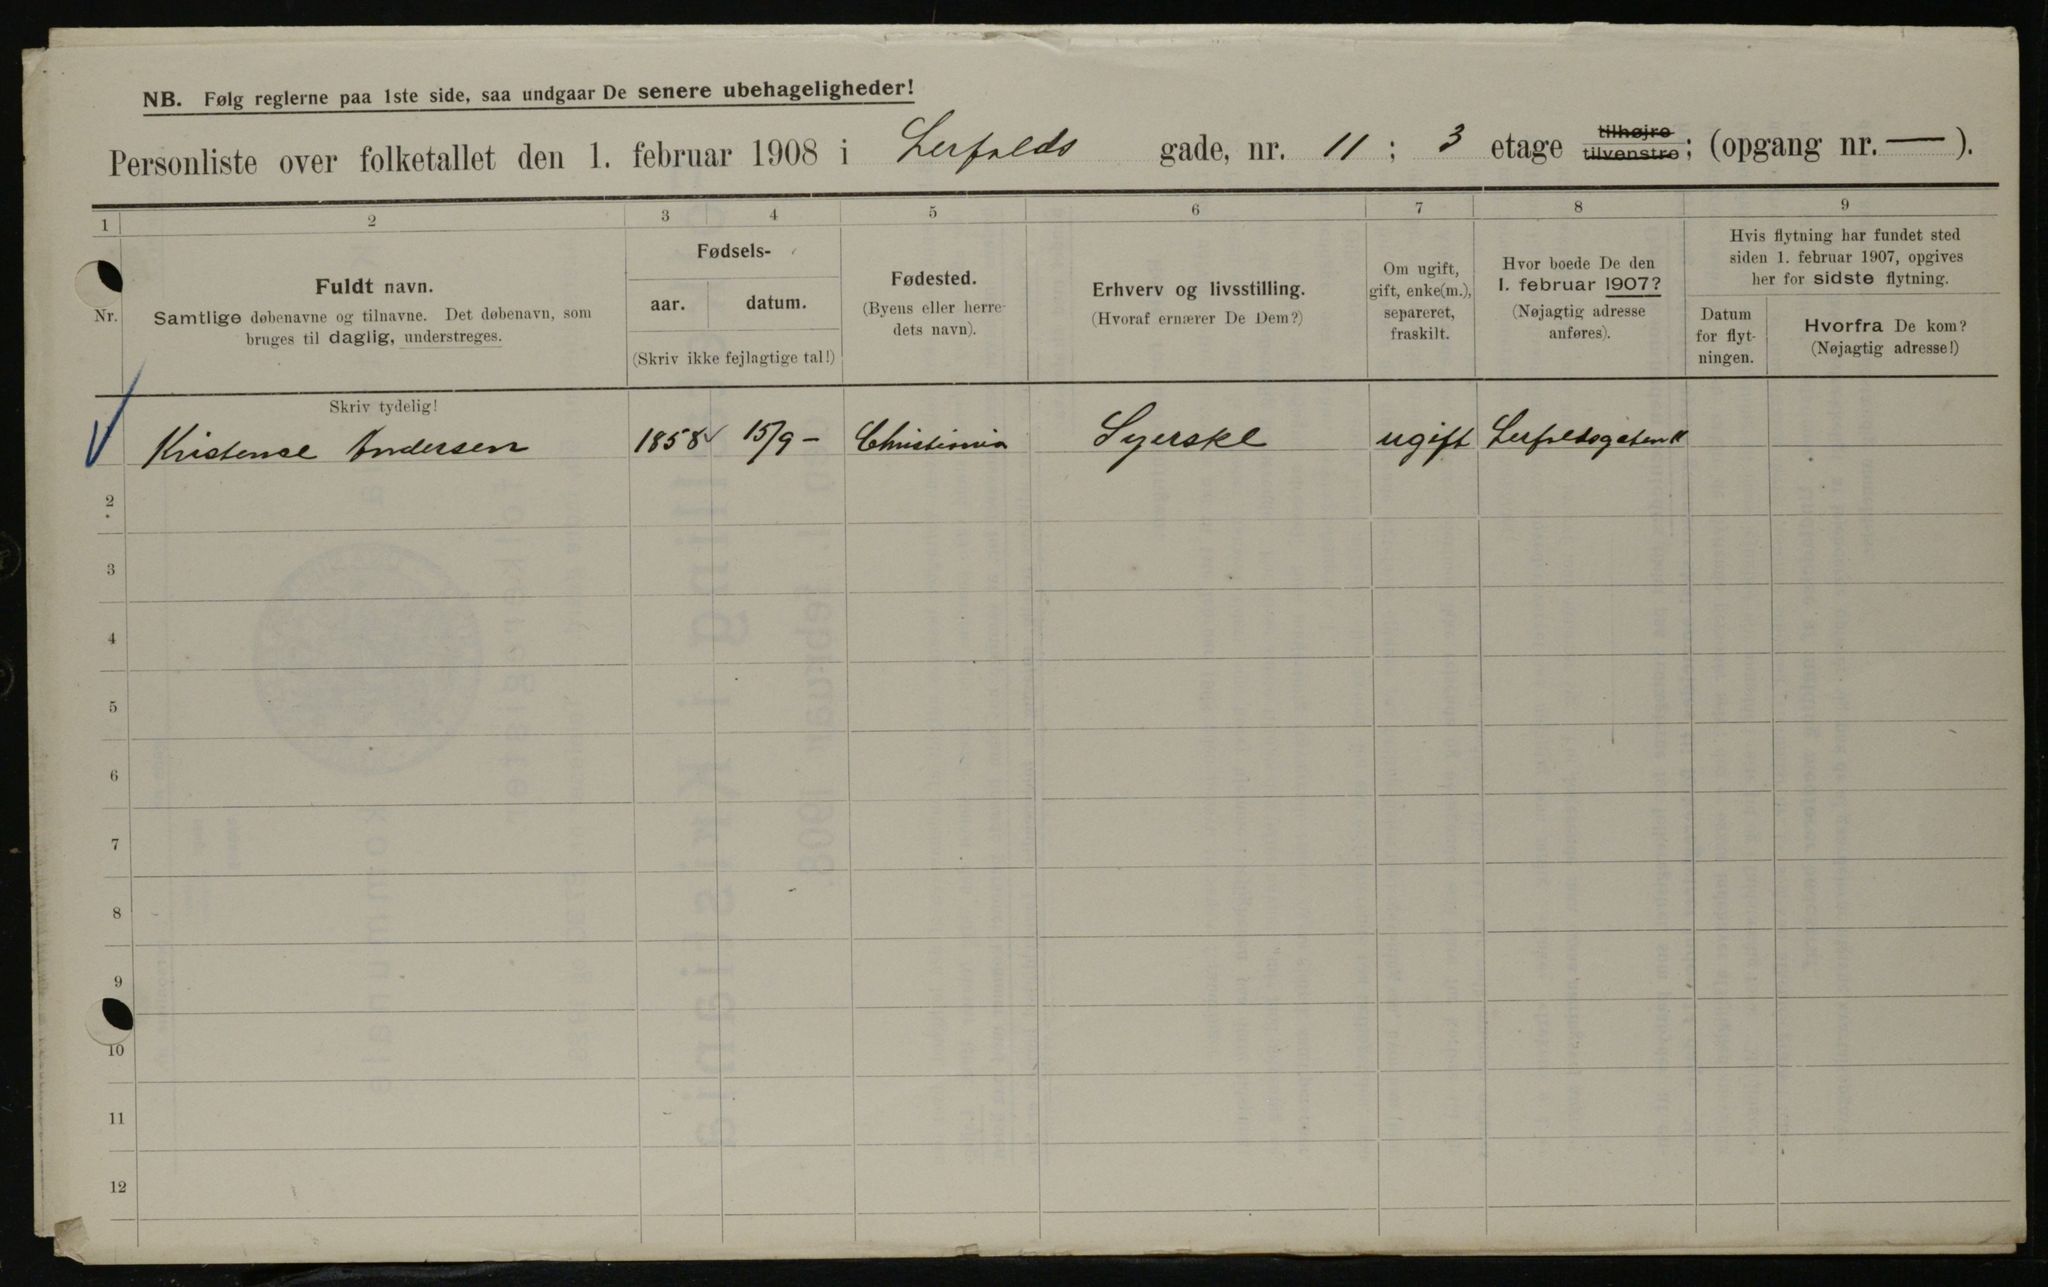 NB. Følg reglerne paa 1ste side, saa undgaar De senere ubehageligheder!
Personliste over folketallet den 1. februar 1908 i Lerfalds gade, nr. 11 ; 3 etage tilhøjre tilvenstre ; (opgang nr. — ).
1 2 3 4 5 6 7 8 9
Nr.
Fuldt navn.
Samtlige døbenavne og tilnavne. Det døbenavn, som
bruges til daglig, understreges.
Fødsels-
aar. datum.
(Skriv ikke fejlagtige tal!)
Fødested.
(Byens eller herre-
dets navn).
Erhverv og livsstilling.
(Hvoraf ernærer De Dem?)
Om ugift,
gift, enke(m.),
separeret,
fraskilt.
Hvor boede De den
1. februar 1907?
(Nøjagtig adresse
anføres).
Hvis flytning har fundet sted
siden 1. februar 1907, opgives
her for sidste flytning.
Datum
for flyt-
ningen.
Hvorfra De kom?
(Nøjagtig adresse!)
Skriv tydelig!
Kristense Andersen 1858 15/9 – Christiania Syerske ugift Lerfaldsgaten 11
2
3
4
5
6
7
8
9
10
11
12